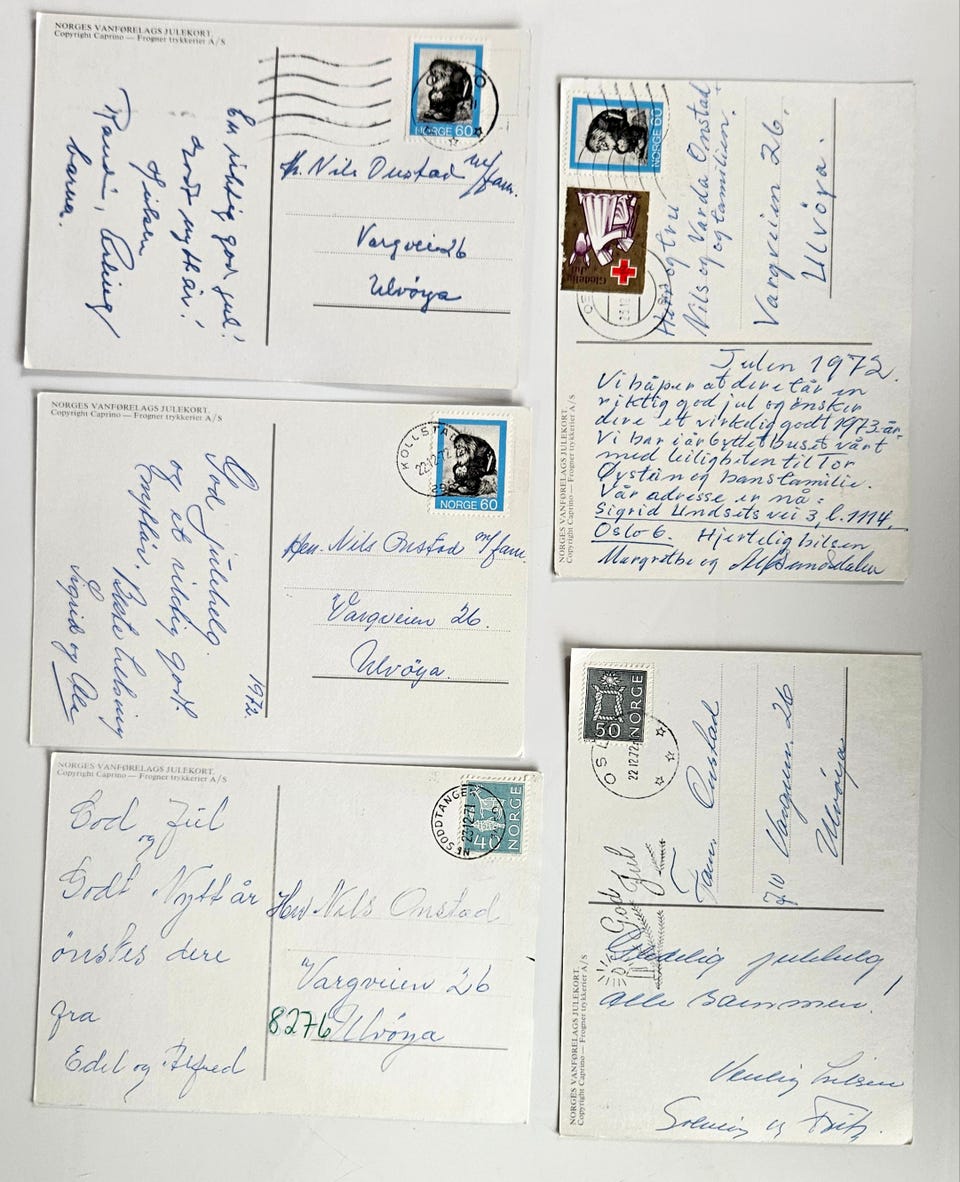 NORGES VANFØRELAGS JULEKORT.
Copyright Caprino — Frogner trykkerier A/S
NORGE 60
En riktig god jul!
Godt nytt år!
Hilsen
Randi, Erling
barna.
Hr. Nils Onstad m/fam.
Vargvei 26
Ulvöya
NORGES VANFØRELAGS JULEKORT.
Copyright Caprino — Frogner trykkerier A/S
KOLLSTAD
22.12.72
NORGE 60
God julehelg.
og et riktig godt
nyttår. Beste hilsning
Sigrid og Ole
1972.
Herr. Nils Onstad m/fam.
Vargveien 26.
Ulvöya.
NORGES VANFØRELAGS JULEKORT.
Copyright Caprino — Frogner trykkerier A/S
NESODDTANGEN
23.12.71
40 NORGE
God Jul
og
Godt Nytt år
ønskes dere
fra
Edel og Alfred
Herr Nils Onstad
Vargveien 26
8276 Ulvöya
NORGE 60
Gledelig Jul
Herr og fru
Nils og Varda Onstad
og familien.
Vargveien 26.
Ulvöya.
NORGES VANFØRELAGS JULEKORT.
Copyright Caprino — Frogner trykkerier A/S
Julen 1972.
Vi håper at dere får en
riktig god jul og ønsker
dere et virkelig godt 1973-år.
Vi har i år byttet huset vårt
med leiligheten til Tor
Øystein og hans familie.
Vår adresse er nå:
Sigrid Undsets vei 3, l. 1114,
Oslo 6. Hjertelig hilsen
Margrethe og Alf Sunddalen
50 NORGE
OSLO
22.12.72
God Jul
Fam. Onstad
Vargveien 26
Ulvöya
NORGES VANFØRELAGS JULEKORT.
Copyright Caprino — Frogner trykkerier A/S
Gledelig julehelg
alle sammen!
Vennlig hilsen
Solveig og Fritz.